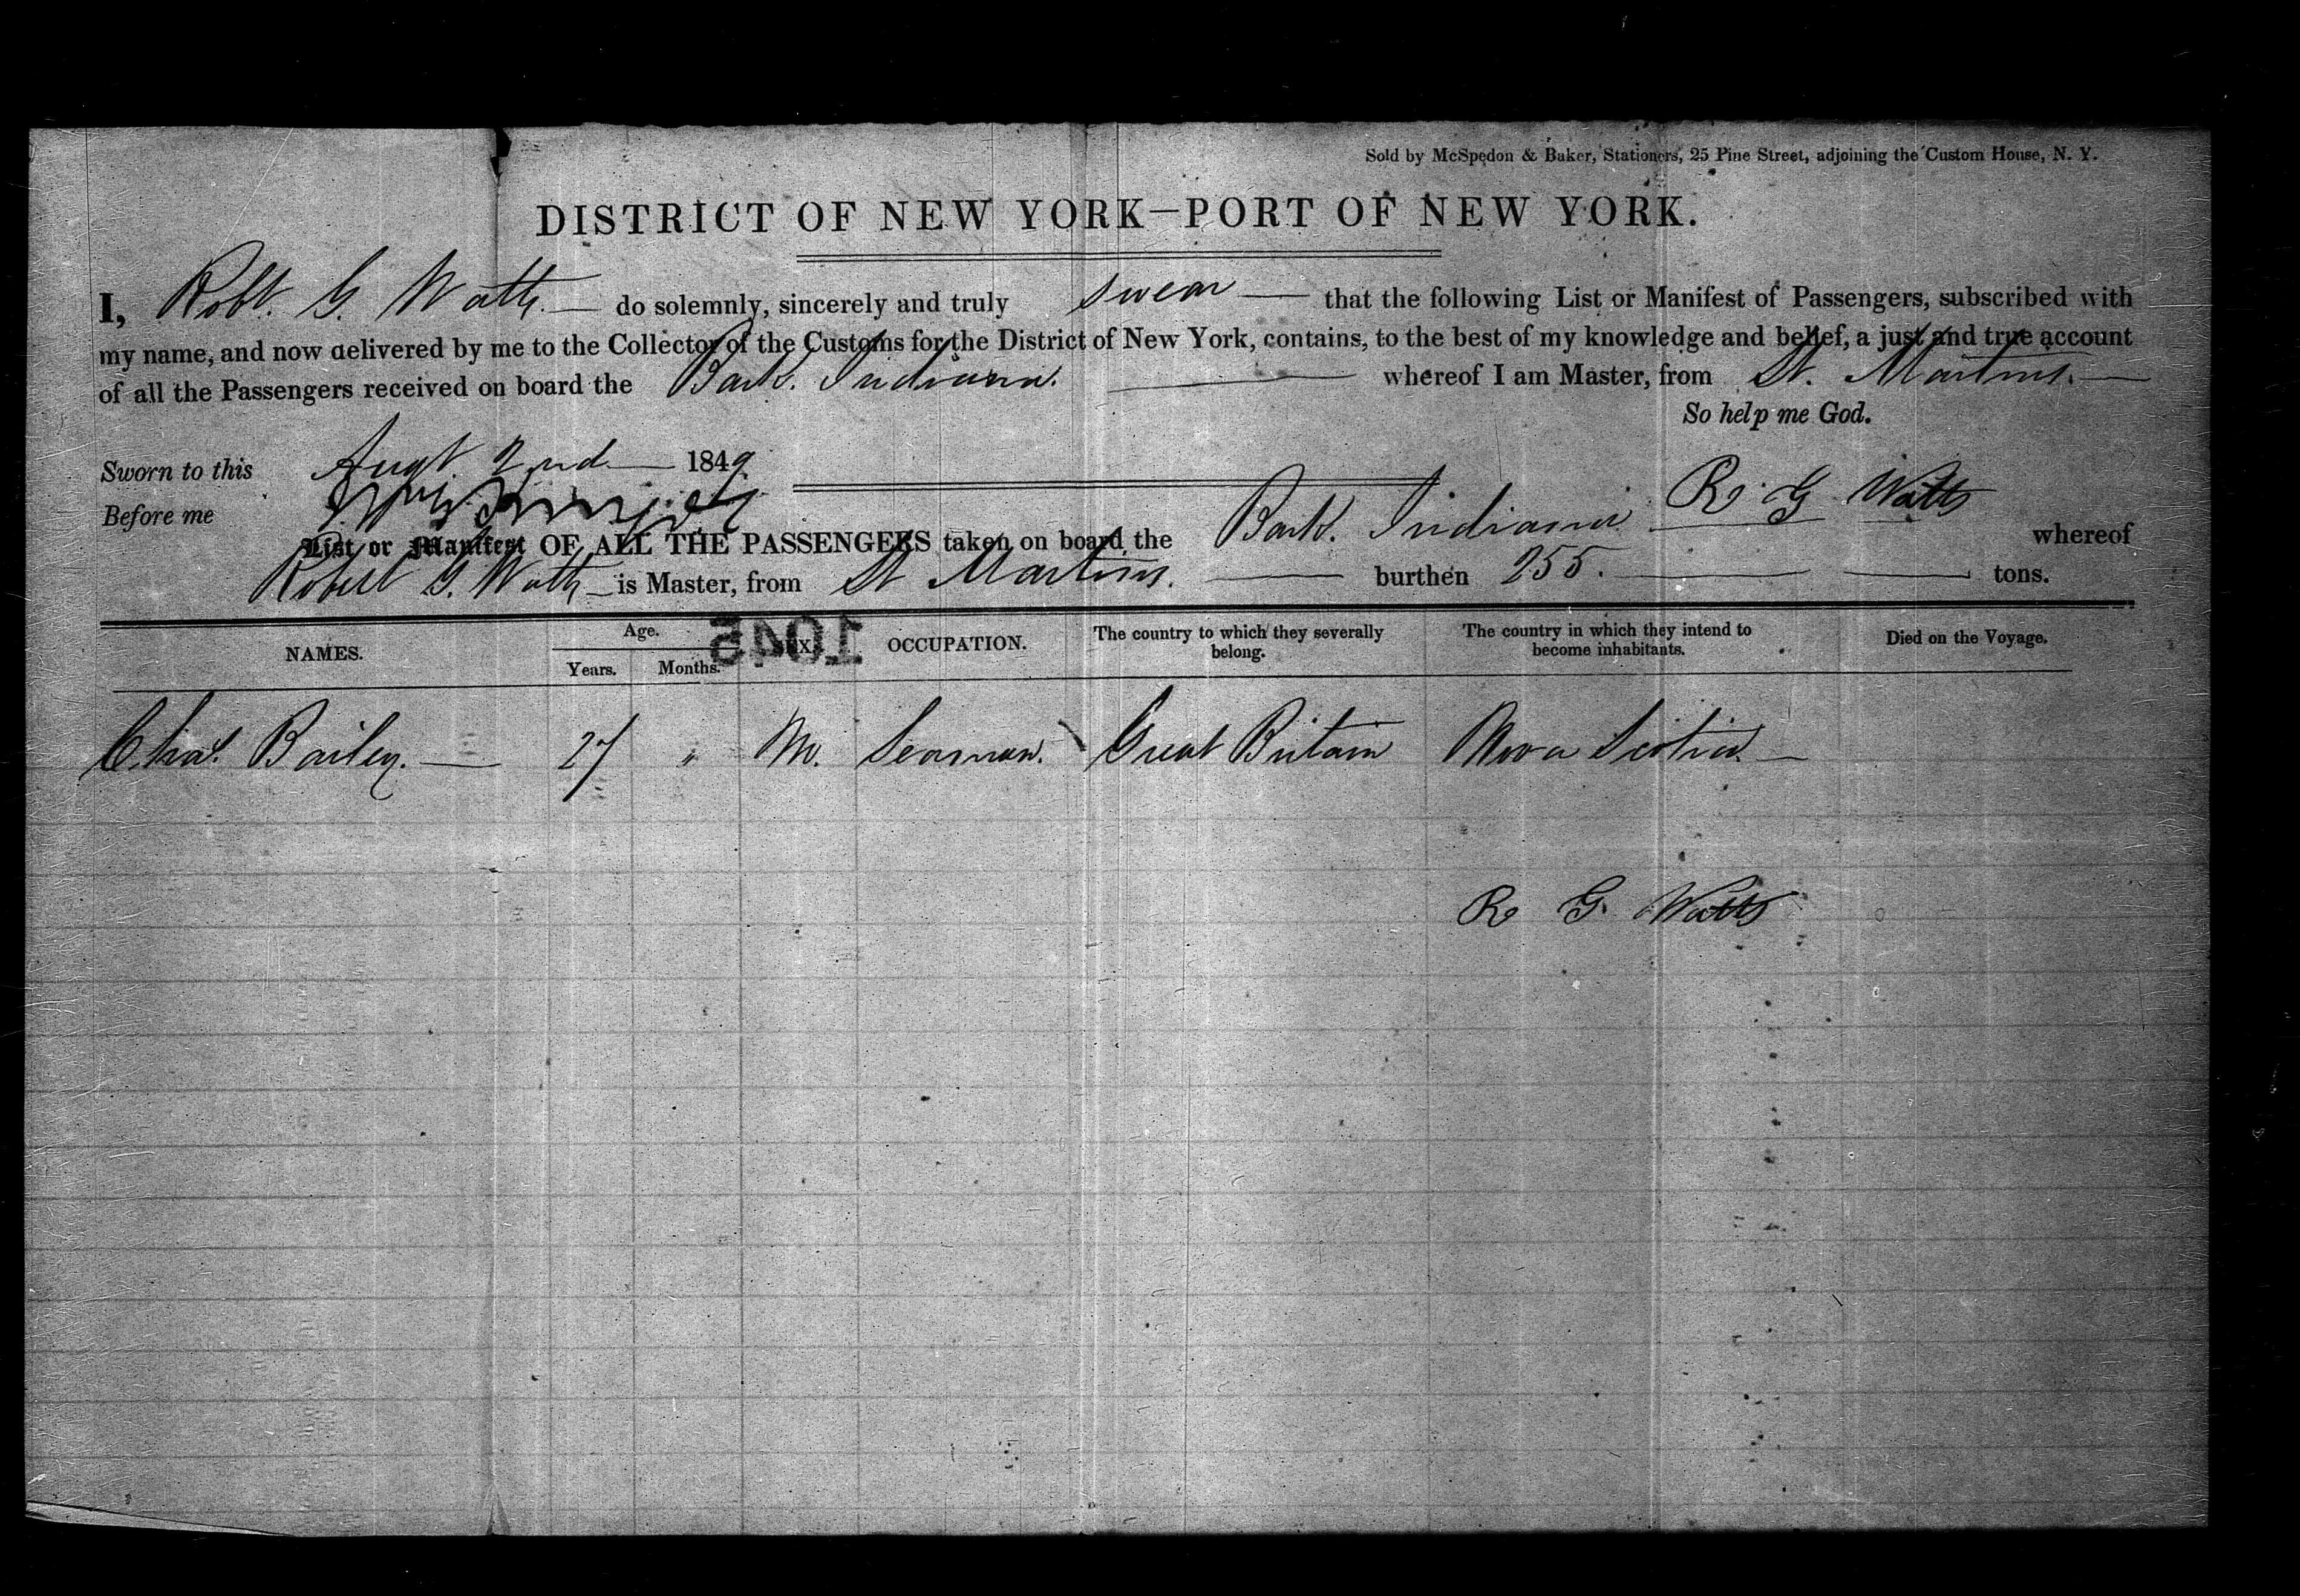 Sold by McSpedon & Baker, Stationers, 25 Pine Street, adjoining the Custom House, N. Y.
DISTRICT OF NEW YORK—PORT OF NEW YORK.
I, Robt. G. Watts — do solemnly, sincerely and truly swear — that the following List or Manifest of Passengers, subscribed with
my name, and now delivered by me to the Collector of the Customs for the District of New York, contains, to the best of my knowledge and belief, a just and true account
of all the Passengers received on board the Bark. Indiana. — whereof I am Master, from St. Martins. —
So help me God.
Sworn to this Augt. 2nd — 1849
Before me
R. G Watts
List or Manifest OF ALL THE PASSENGERS taken on board the Bark. Indiana whereof
Robert G. Watts — is Master, from St Martins. — burthen 255. — tons.
NAMES. Age. Years. Months. OCCUPATION. The country to which they severally belong. The country in which they intend to become inhabitants. Died on the Voyage.
1045
Chas. Bailey. — 27 " M. Seaman. Great Britain Nova Scotia. —
R G. Watts